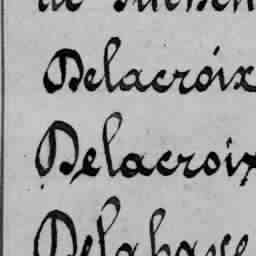 de
Delacroix
Delacroix
Delahaye